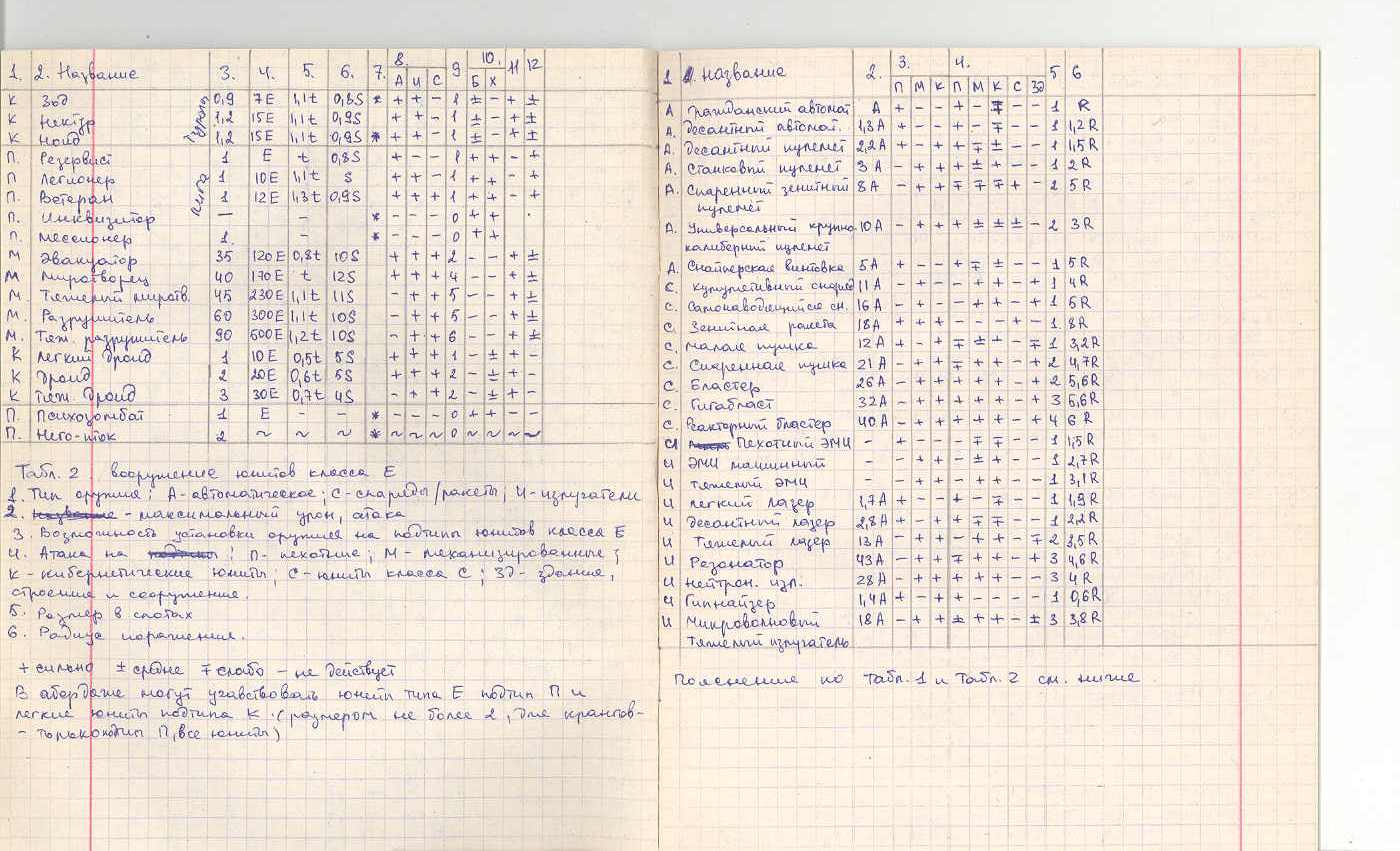 1. 2. Название 3. 4. 5. 6. 7. 8. 9 10. 11 12
А И С Б Х
К Зод 0,9 7E 1,1t 0,8S * + + - 1 ± - + ±
К Нектур 1,2 15E 1,1t 0,9S + + - 1 ± - + ±
К Ноид 1,2 15E 1,1t 0,9S * + + - 1 ± - + ±
П. Резервист 1 E t 0,8S + - - 1 + + - +
П Легионер 1 10E 1,1t S + + - 1 + + - +
П. Ветеран 1 12E 1,3t 0,9S + + + 1 + + - +
П. Инквизитор — - * - - - 0 + +
П. Мессионер 1. - * - - - 0 + +
М Эвакуатор 35 120E 0,8t 10S + + + 2 - - + ±
М Миротворец 40 170E t 12S + + + 4 - - + ±
М. Тяжелый миротв. 45 230E 1,1t 11S - + + 5 - - + ±
М. Разрушитель 60 300E 1,1t 10S - + + 5 - - + ±
М. Тяж. разрушитель 90 500E 1,2t 10S - + + 6 - - + ±
К Легкий Дроид 1 10E 0,5t 5S + + + 1 - ± + -
К Дроид 2 20E 0,6t 5S + + + 2 - ± + -
К Тяж. Дроид 3 30E 0,7t 4S - + + 2 - ± + -
П. Психозомбат 1 E - - * - - - 0 + + - -
П. Него-шток 2 ~ ~ ~ * ~ ~ ~ 0 ~ ~ ~ ~
Табл. 2 вооружение юнитов класса E
1. Тип оружия; А-автоматическое; С-снаряды/ракеты; И-излучатели
2. - максимальный урон, атака
3. Возможность установки оружия на подтипы юнитов класса E
4. Атака на : П- пехотные; М- механизированные;
К-кибернетические юниты; С-юниты класса С; ЗД- здания,
строения и сооружения.
5. Размер в слотах
6. Радиус поражения.
+ сильно ± средне ∓ слабо - не действует
В абордаже могут учавствовать юниты типа E подтип П и
легкие юниты подтипа К. (размером не более 2, для крангов-
- только П, все юниты)
1 Название 2. 3. 4. 5 6
П М К П М К С ЗД
А Гражданский автомат А + - - + - ∓ - - 1 R
А. Десантный автомат. 1,3А + - - + - ∓ - - 1 1,2R
А. Десантный пулемет 2,2А + - + + ∓ ± - - 1 1,5R
А. Станковый пулемет 3А - + + + ± + - - 1 2R
А. Спаренный зенитный 8А - + + ∓ ∓ ∓ + - 2 5R
пулемет
А. Универсальный крупно- 10А - + + + ± ± ± - 2 3R
калиберний пулемет
А. Снайперская винтовка 5А + - - + ∓ ± - - 1 5R
С. Кумулятивный снаряд 11А - + - - + + - + 1 4R
С. Самонаводящийся сн. 16А - + - - + + - + 1 5R
С. Зенитная ракета 18А + + + - - - + - 1. 8R
С. Малая пушка 12А + - + ∓ ± + - ∓ 1 3,2R
С. Спаренная пушка 21А - + + ∓ + + - + 2 4,7R
С. Бластер 26А - + + + + + - + 2 5,6R
С. Гигабласт 32А - + + + + + - + 3 5,6R
С. Реакторный бластер 40А - + + + + + - + 4 6R
И Пехотный ЭМИ - + - - - ∓ ∓ - - 1 1,5R
И ЭМИ машинный - - + + - ± + - - 1 2,7R
И Тяжелый ЭМИ - - + - + + - - 1 3,1R
И Легкий лазер 1,7А + - - + - ∓ - - 1 1,9R
И Десантный лазер 2,8А + - + + ∓ ∓ - - 1 2,2R
И Тяжелый лазер 13А - + + - + + - ∓ 2 3,5R
И Резонатор 43А - + + ∓ + + - + 3 4,6R
И Нейтрон. изл. 28А - + + + + + - - 3 4R
И Гипнайзер 1,4А + - + + - - - - 1 0,6R
И Микроволновый 18А - + + ± + + - ± 3 3,8R
Тяжелый излучатель
Пояснение по Табл. 1 и Табл. 2 см. ниже.